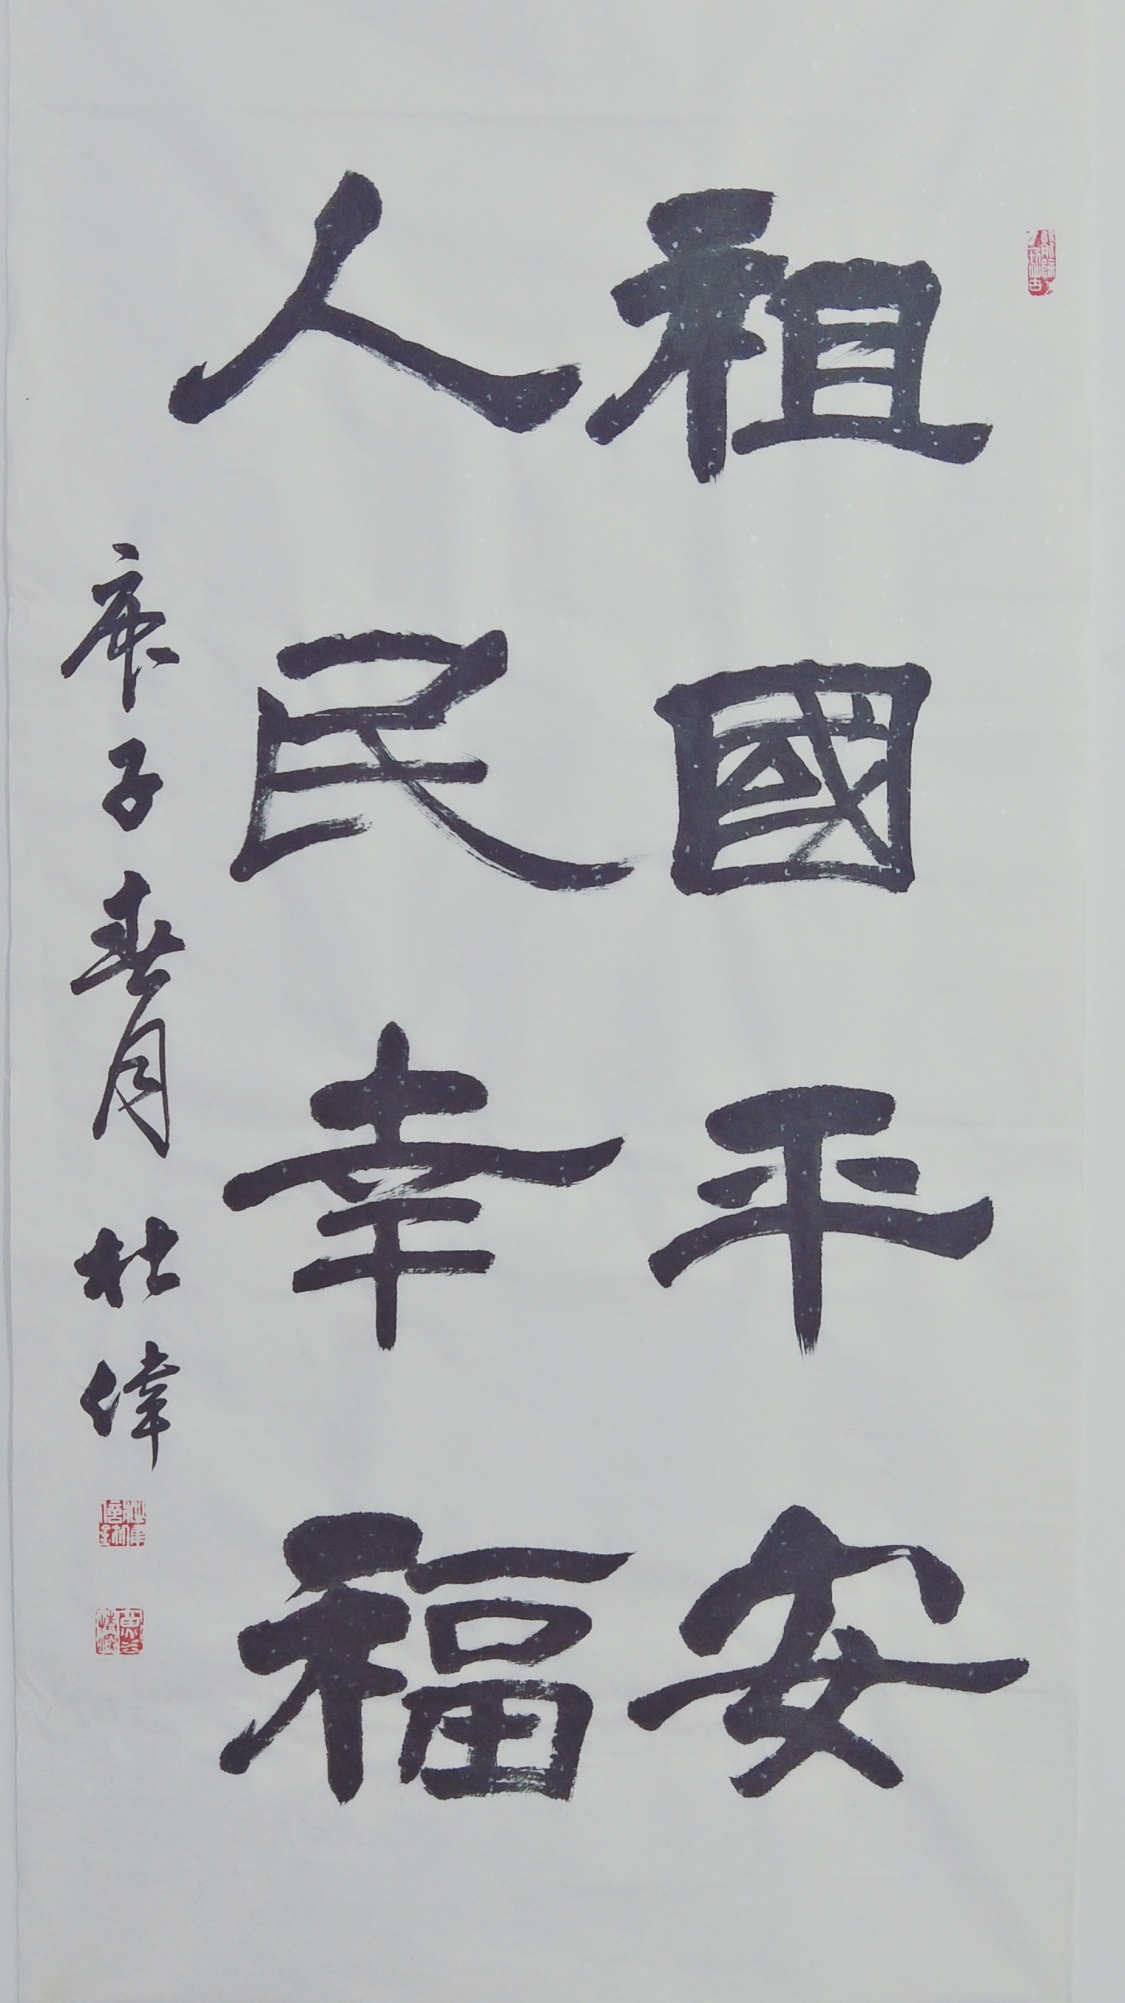 祖國平安
人民幸福
庚子春月 杜偉